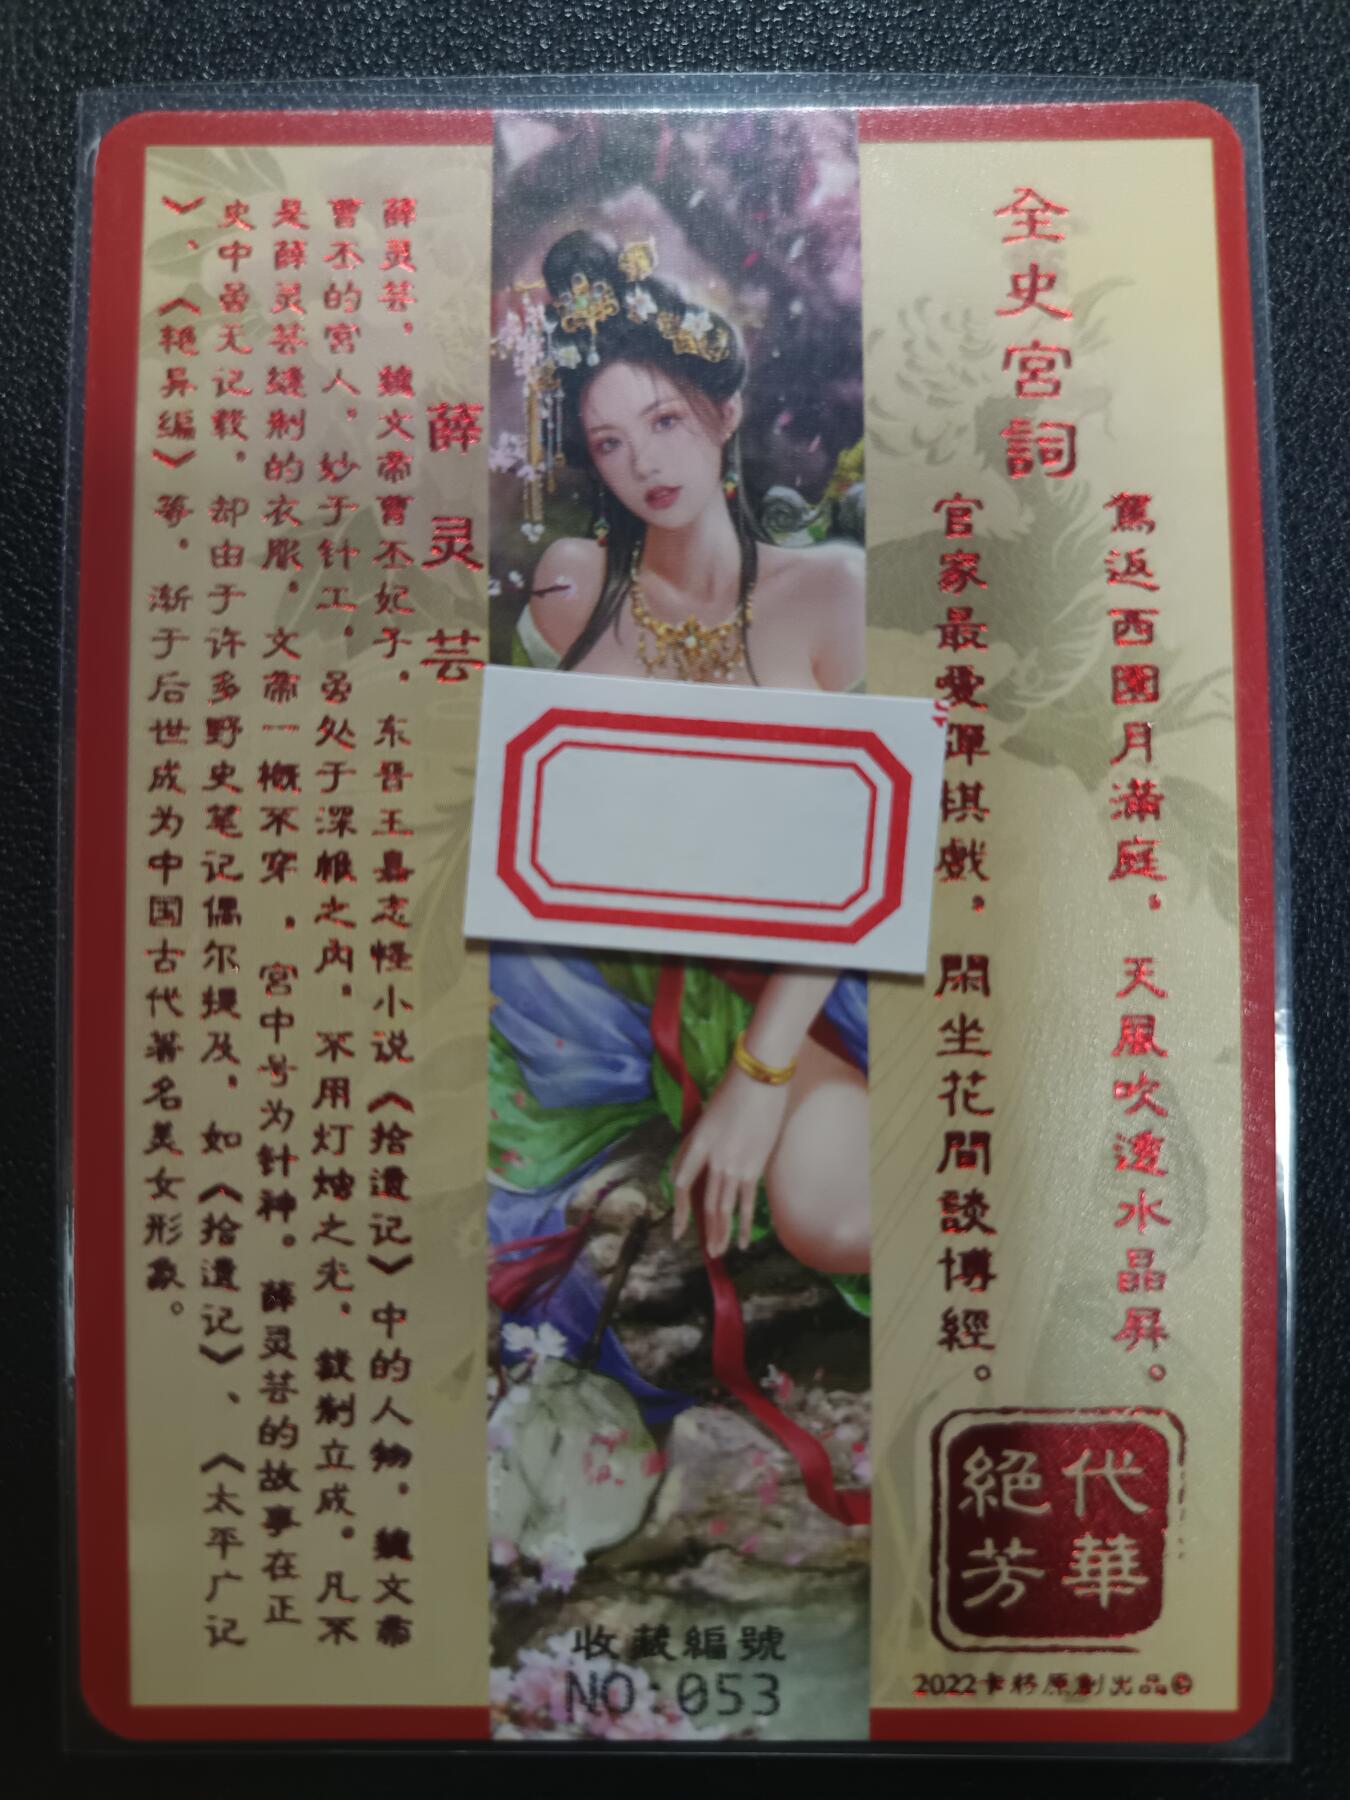 全史宮詞
駕返西園月滿庭，天風吹透水晶屏。
官家最愛彈棋戲，閑坐花間談博經。
絕代
芳華
2022卡 原創出品©
薛灵芸
薛灵芸，魏文帝曹丕妃子。东晋王嘉志怪小说《拾遗记》中的人物。魏文帝
曹丕的宫人，妙于针工。虽处于深帷之内，不用灯烛之光，裁制立成。凡不
是薛灵芸缝制的衣服，文帝一概不穿，宫中号为针神。薛灵芸的故事在正
史中虽无记载，却由于许多野史笔记偶尔提及，如《拾遗记》、《太平广记
》、《艳异编》等，渐于后世成为中国古代著名美女形象。
收藏編號
NO:053